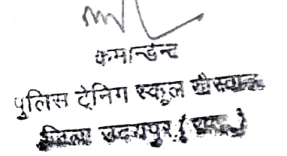 कमान्डेन्ट
पुलिस ट्रेनिंग स्कूल खैरवाड़ा
जिला उदयपुर (राज.)